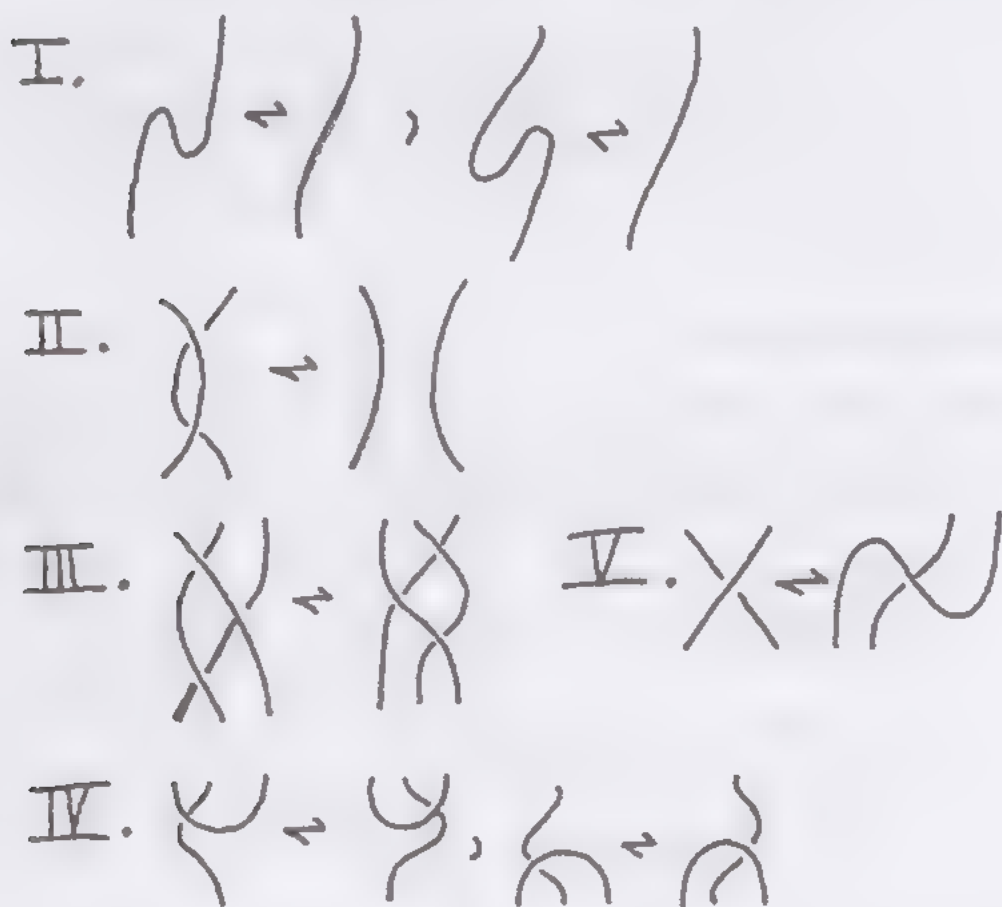 I. ,
II.
III.
V.
IV. ,